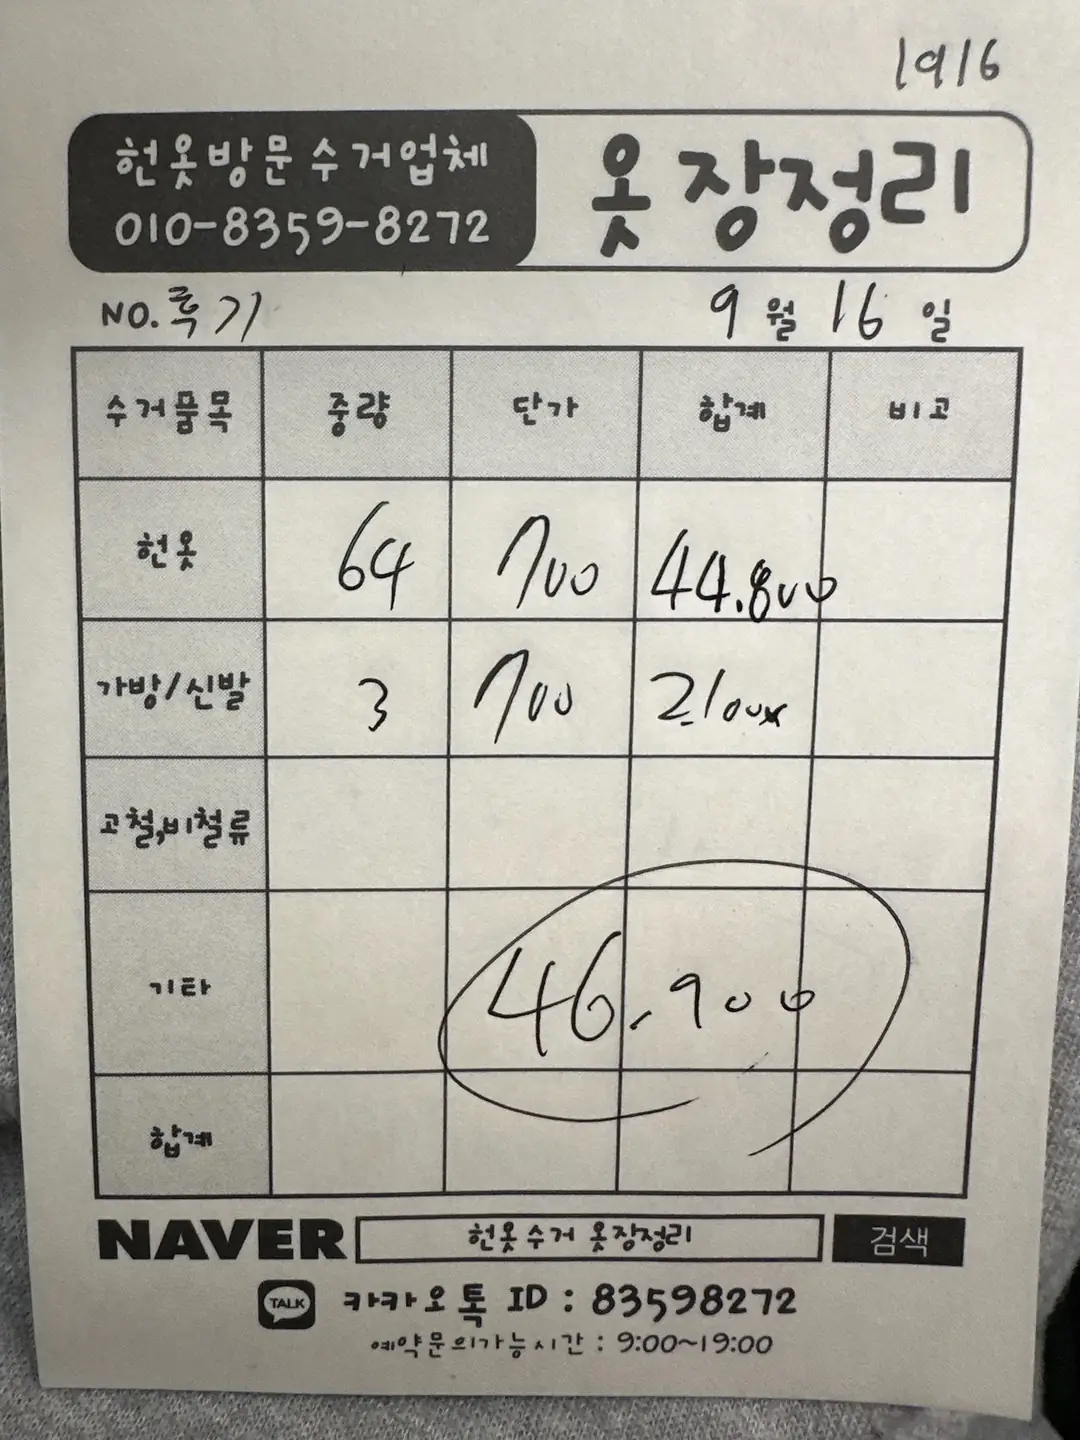 1916
헌옷방문수거업체
010-8359-8272
옷장정리
NO.
9월 16일
수거품목 중량 단가 합계 비고
헌옷 64 700 44.800
가방/신발 3 700 2.100
고철,비철류
기타 46.900
합계
NAVER 헌옷수거 옷장정리 검색
TALK 카카오톡 ID : 83598272
예약문의가능시간 : 9:00~19:00